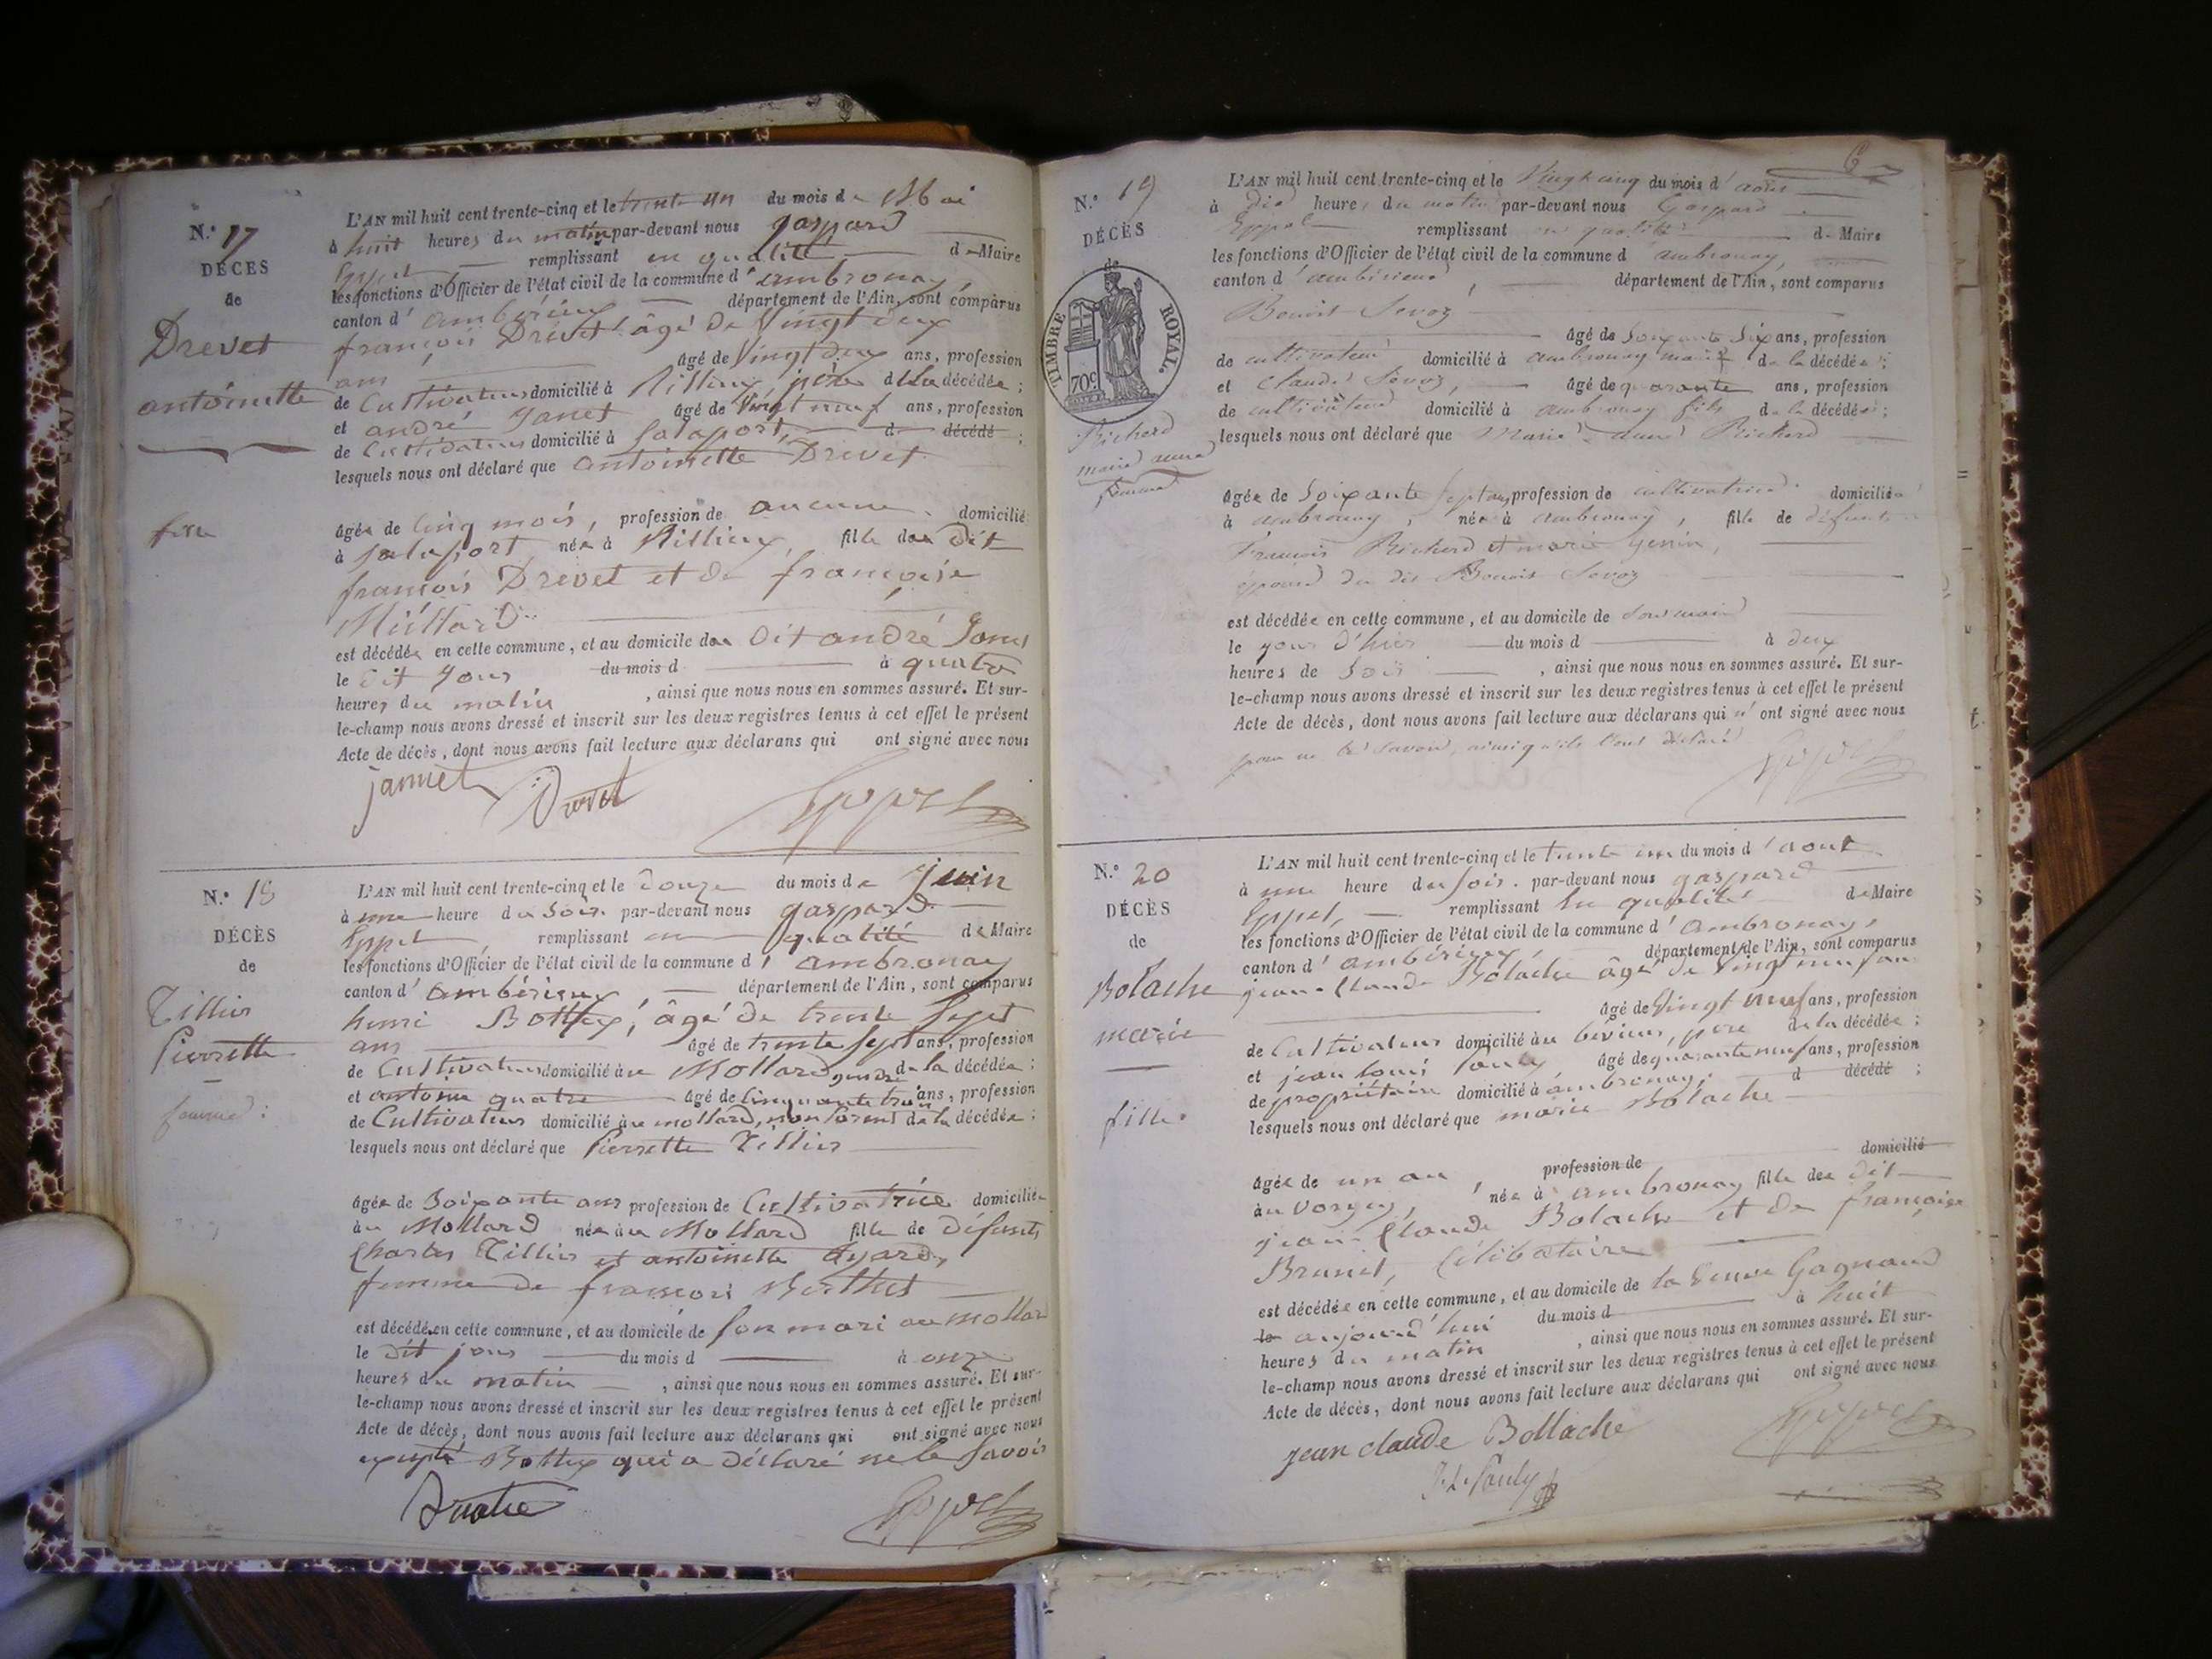 N.° 17
DÉCÈS
de
Drevet
antoinette
fille
L'AN mil huit cent trente-cinq et le trente un du mois de Mai
à huit heures du matin par-devant nous gaspard
Eppel remplissant en qualité de Maire
les fonctions d'Officier de l'état civil de la commune d'ambronay,
canton d'ambérieux département de l'Ain, sont comparus
françois Drevet âgé De Vingt deux
ans âgé de Vingt deux ans, profession
de Cultivateur domicilié à Rillieux, père de la décédée ;
et andré Janet âgé de Vingt neuf ans, profession
de Cultivateur domicilié à Salaport, d décédé ;
lesquels nous ont déclaré que antoinette Drevet
âgée de Cinq mois, profession de aucune. domicilié
à Salaport née à Rillieux, fille des Dit
françois Drevet et de françoise
est décédée en cette commune, et au domicile du Dit andré Janet
le Dit Jour du mois d à quatre
heures du matin, ainsi que nous nous en sommes assuré. Et sur-
le-champ nous avons dressé et inscrit sur les deux registres tenus à cet effet le présent
Acte de décès, dont nous avons fait lecture aux déclarans qui ont signé avec nous
jannet Drevet Eppel
N.° 18
DÉCÈS
de
Tillier
Pierrette
femme :
L'AN mil huit cent trente-cinq et le Douze du mois de juin
à une heure du Soir. par-devant nous gaspard
Eppel remplissant en qualité de Maire
les fonctions d'Officier de l'état civil de la commune d'ambronay
canton d'ambérieux, département de l'Ain, sont comparus
henri Bottex, âgé De trente Sept
ans âgé de trente Sept ans, profession
de Cultivateur domicilié au Mollard gendre de la décédée ;
et antoine quatre âgé de Cinquante trois ans, profession
de Cultivateur domicilié au mollard, non parent de la décédée ;
lesquels nous ont déclaré que Pierrette Tillier
âgée de Soixante ans profession de Cultivatrice domiciliée
au Mollard née au Mollard fille de Défunts
Charles Tillier et antoinette
femme de françois Berthet
est décédée en cette commune, et au domicile de son mari au Mollard
le Dit jour du mois d à onze
heures du matin, ainsi que nous nous en sommes assuré. Et sur-
le-champ nous avons dressé et inscrit sur les deux registres tenus à cet effet le présent
Acte de décès, dont nous avons fait lecture aux déclarans qui ont signé avec nous
excepté Bottex qui a Déclaré ne le Savoir
Quatre Eppel
6
N.° 19
DÉCÈS
de
TIMBRE ROYAL.
70c
Richerd
marie anne
femme
L'AN mil huit cent trente-cinq et le Vingt cinq du mois d'août
à dix heures du matin par-devant nous Gaspard
Eppel remplissant en qualité de Maire
les fonctions d'Officier de l'état civil de la commune d'ambronay,
canton d'ambérieux, département de l'Ain, sont comparus
Benoit Sevoz
âgé de Soixante Six ans, profession
de cultivateur domicilié à ambronay mari de la décédée ;
et Claude Sevoz, âgé de quarante ans, profession
de cultivateur domicilié à ambronay fils de la décédée ;
lesquels nous ont déclaré que Marie anne Richerd
âgée de Soixante Sept ans, profession de cultivatrice domiciliée
à ambronay, née à ambronay, fille de défunts
François Richerd et marie Genin,
épouse du dit Benoit Sevoz
est décédée en cette commune, et au domicile de son mari
le jour d'hier du mois d à deux
heures de Soir, ainsi que nous nous en sommes assuré. Et sur-
le-champ nous avons dressé et inscrit sur les deux registres tenus à cet effet le présent
Acte de décès, dont nous avons fait lecture aux déclarans qui n'ont signé avec nous
pour ne le savoir, ainsi qu'ils l'ont déclaré
Eppel
N.° 20
DÉCÈS
de
Bolache
marie
fille.
L'AN mil huit cent trente-cinq et le trente un du mois d'aout
à une heure du soir. par-devant nous gaspard
Eppel, remplissant en qualité de Maire
les fonctions d'Officier de l'état civil de la commune d'ambronay,
canton d'ambérieux, département de l'Ain, sont comparus
jean-Claude Bolache âgé de Vingt neuf ans
âgé de Vingt neuf ans, profession
de Cultivateur domicilié au père de la décédée ;
et jean louis Pauly âgé de quarante neuf ans, profession
de propriétaire domicilié à ambronay, d décédé ;
lesquels nous ont déclaré que marie Bolache
âgée de un an, profession de domicilié
au née à ambronay fille des Dit
jean-Claude Bolache et De françoise
Brunet, Célibataire
est décédée en cette commune, et au domicile de la Veuve Gagnaud
le aujourd'hui du mois d à huit
heures du matin, ainsi que nous nous en sommes assuré. Et sur-
le-champ nous avons dressé et inscrit sur les deux registres tenus à cet effet le présent
Acte de décès, dont nous avons fait lecture aux déclarans qui ont signé avec nous
jean claude Bollache Eppel
J. L. Pauly